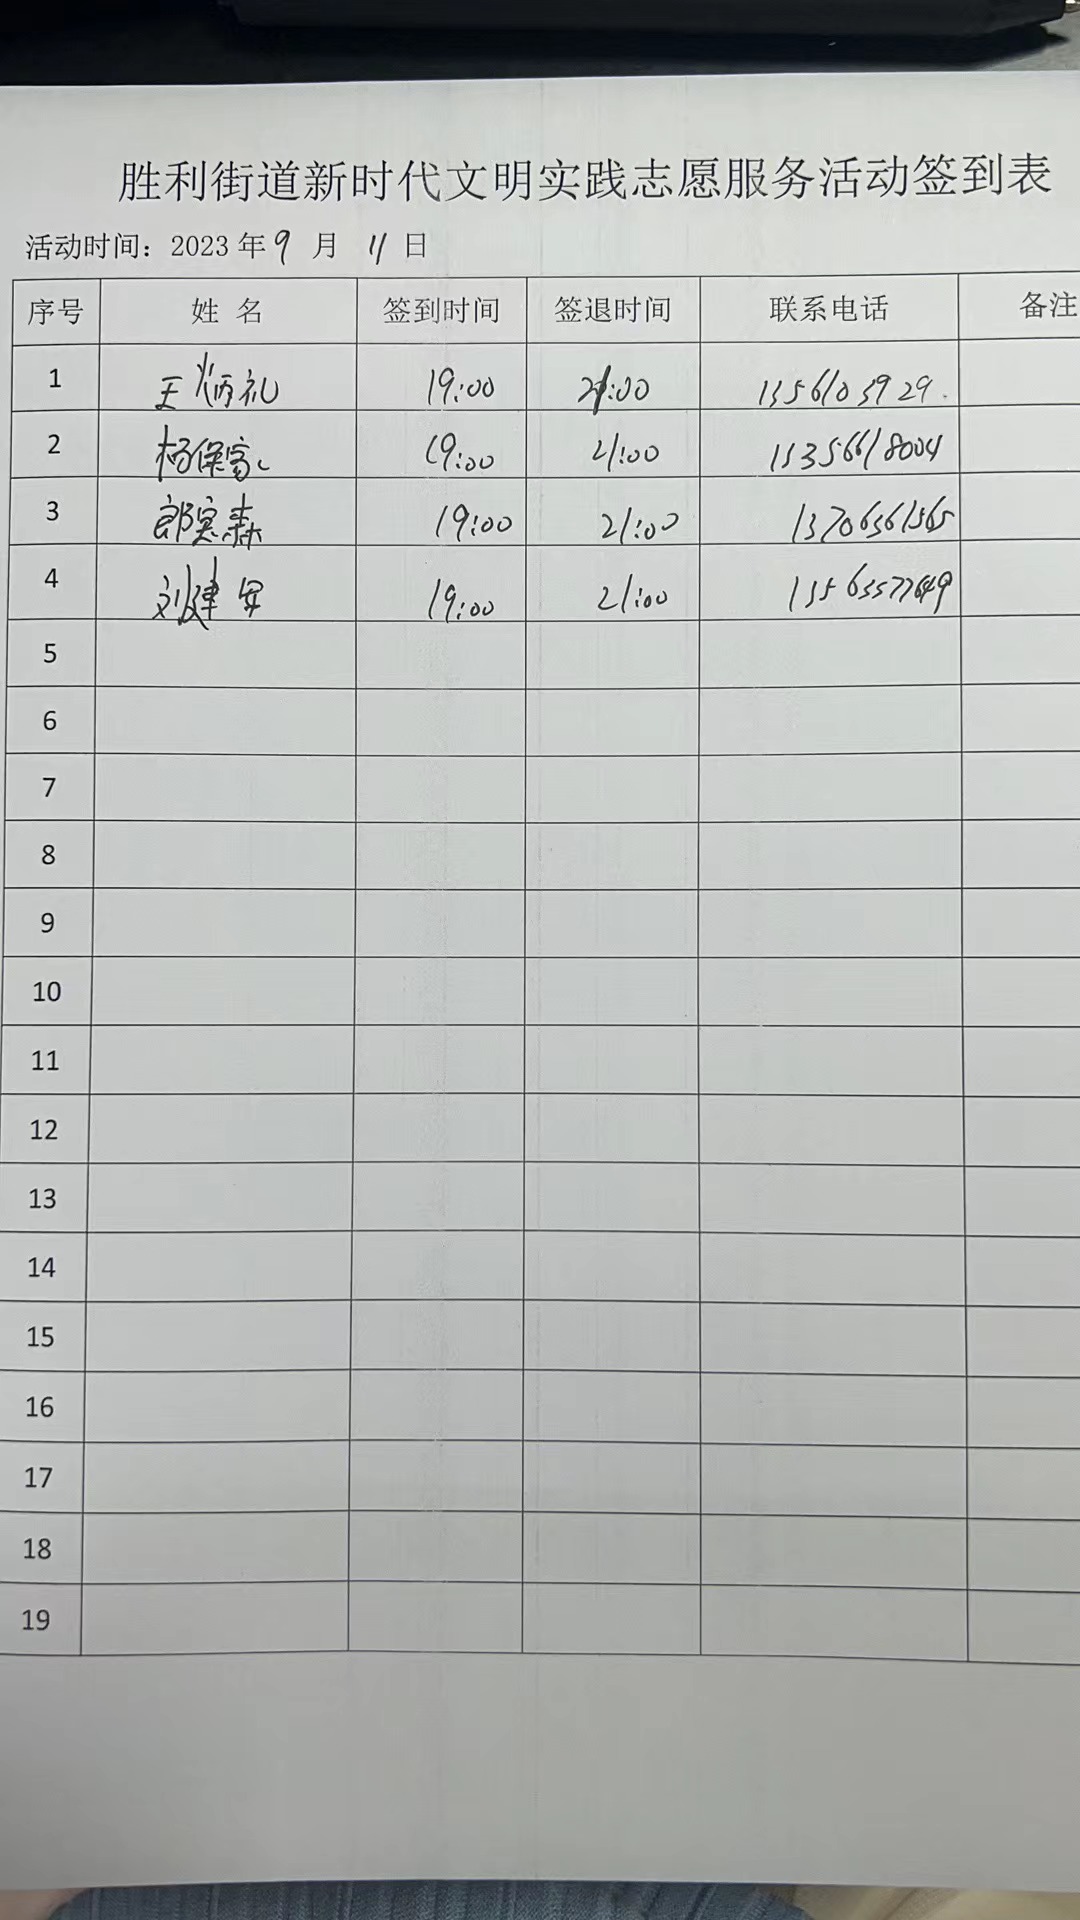 胜利街道新时代文明实践志愿服务活动签到表
活动时间：2023年9月11日
序号 姓名 签到时间 签退时间 联系电话 备注
1 王炳礼 19:00 21:00 1356103929
2 杨保富 19:00 21:00 15356618004
3 19:00 21:00 13706361565
4 刘建军 19:00 21:00 13563577649
5
6
7
8
9
10
11
12
13
14
15
16
17
18
19